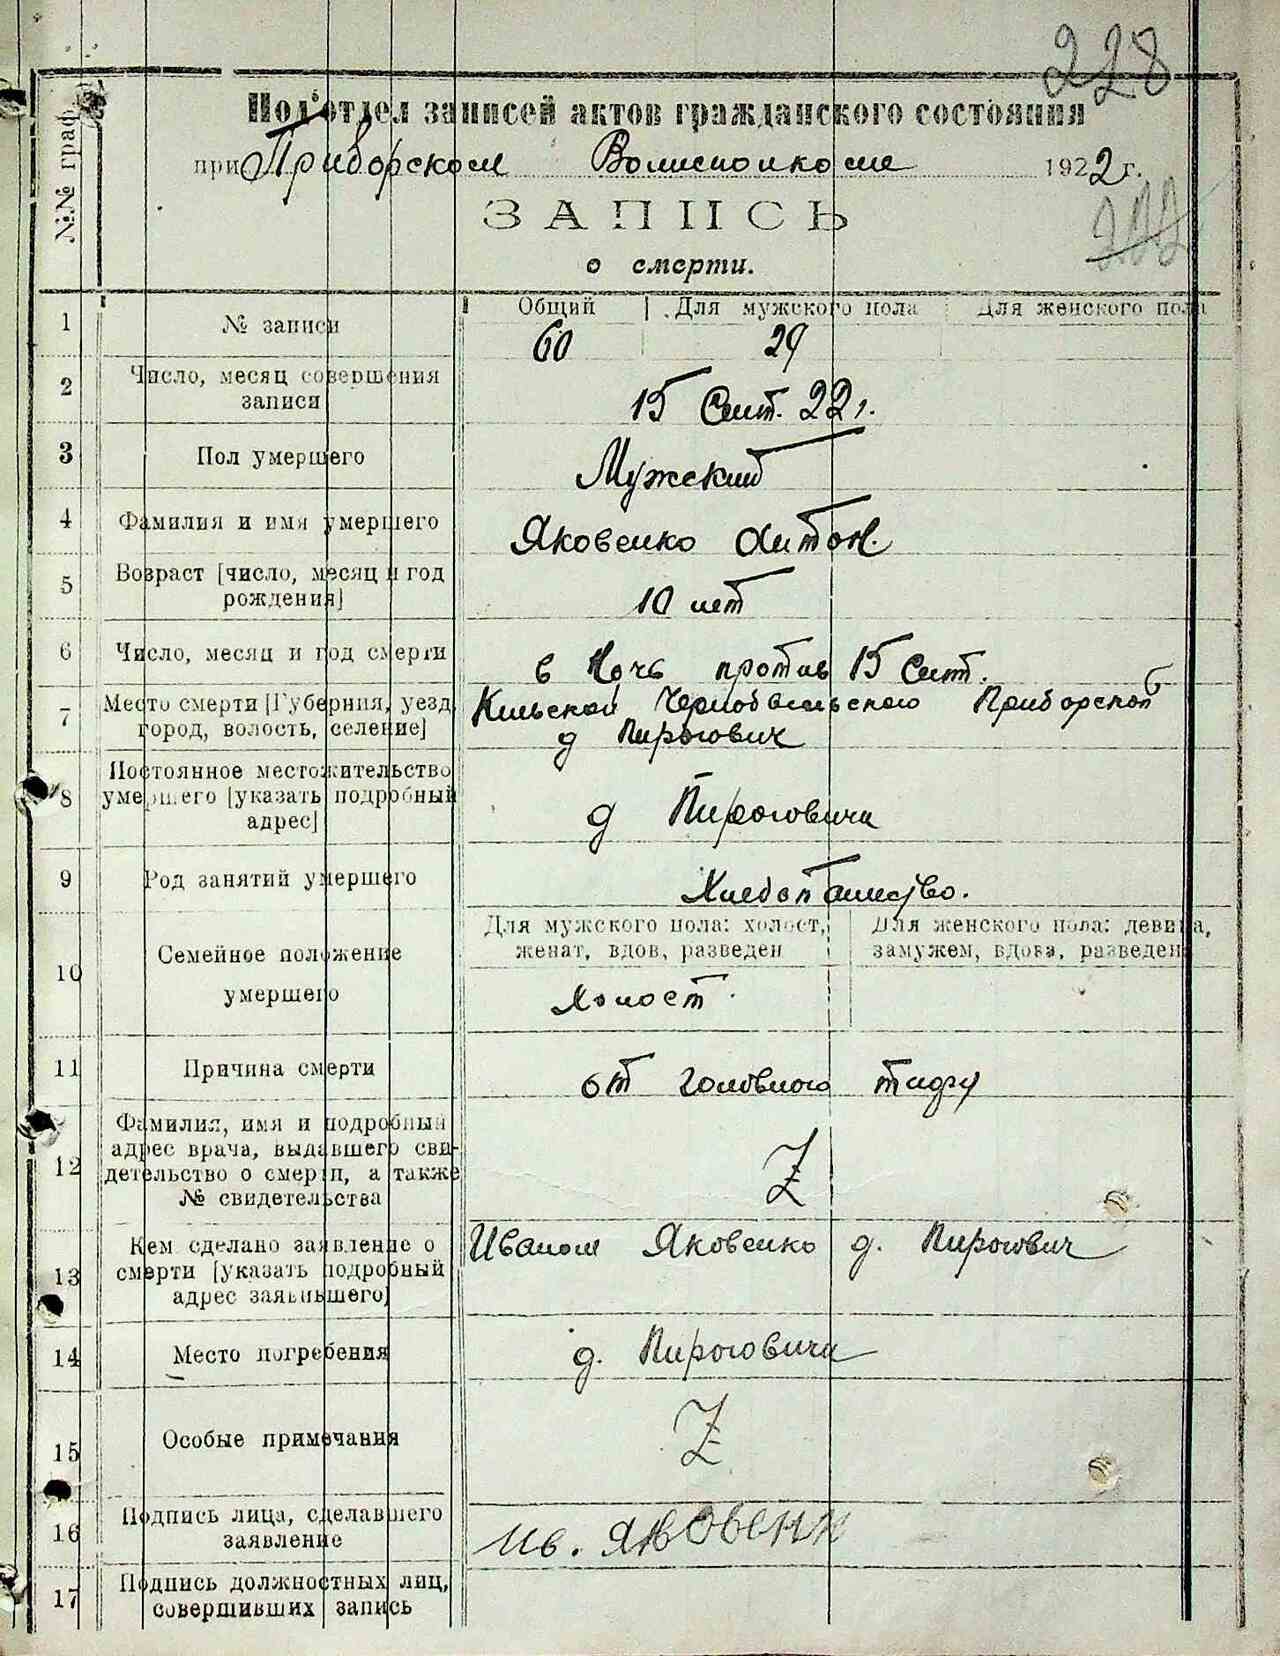 228
Подъотдел записей актов гражданского состояния
при Приборском Волисполкоме 1922 г.
ЗАПИСЬ
о смерти.
№№ граф
1 № записи Общий Для мужского пола Для женского пола
60 29
2 Число, месяц совершения
записи
15 Сент. 22 г.
3 Пол умершего Мужский
4 Фамилия и имя умершего Яковенко Антон.
5 Возраст [число, месяц и год
рождения]
10 лет
6 Число, месяц и год смерти в ночь против 15 Сент.
7 Место смерти [Губерния, уезд,
город, волость, селение]
Киевской Чернобыльского Приборской
д Пирогович
8 Постоянное местожительство
умершего [указать подробный
адрес]
д Пироговичи
9 Род занятий умершего Хлебопашество.
10 Семейное положение
умершего
Для мужского пола: холост,
женат, вдов, разведен
Для женского пола: девица,
замужем, вдова, разведена
Холост
11 Причина смерти от головного тифу
12 Фамилия, имя и подробный
адрес врача, выдавшего сви-
детельство о смерти, а также
№ свидетельства
Z
13 Кем сделано заявление о
смерти [указать подробный
адрес заявившего]
Иваном Яковенко д. Пирогович
14 Место погребения д. Пироговичи
15 Особые примечания Z
16 Подпись лица, сделавшего
заявление
Ив. Яковенк
17 Подпись должностных лиц,
совершивших запись